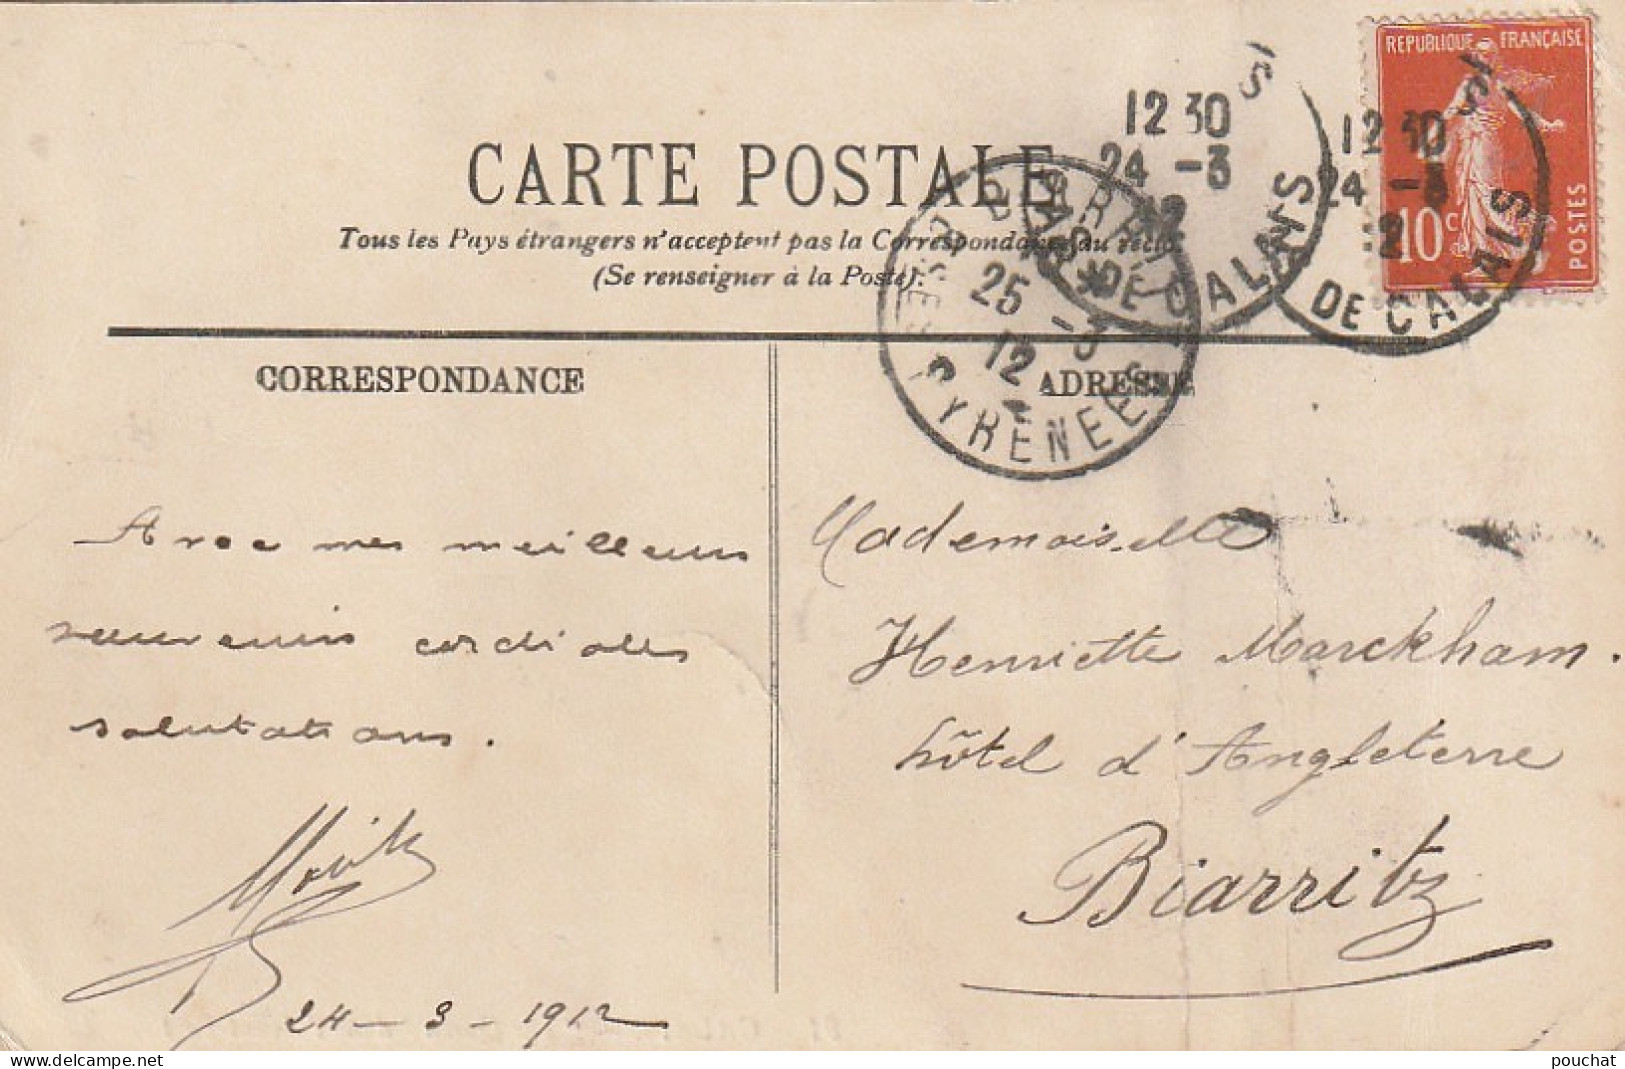 REPUBLIQUE FRANÇAISE
10c POSTES
12 30
24 -3
12
PAS DE CALAIS
12 30
24 -3
12
DE CALAIS
CARTE POSTALE
Tous les Pays étrangers n'acceptent pas la Correspondance au recto
(Se renseigner à la Poste).
BIARRITZ
25 -3
12
BSES PYRENEES
CORRESPONDANCE
ADRESSE
Avec mes meilleurs
souvenirs cordiales
salutations.
24 - 3 - 1912
Mademoiselle
Henriette Marckham.
hôtel d'Angleterre
Biarritz
delcampe.net
pouchat